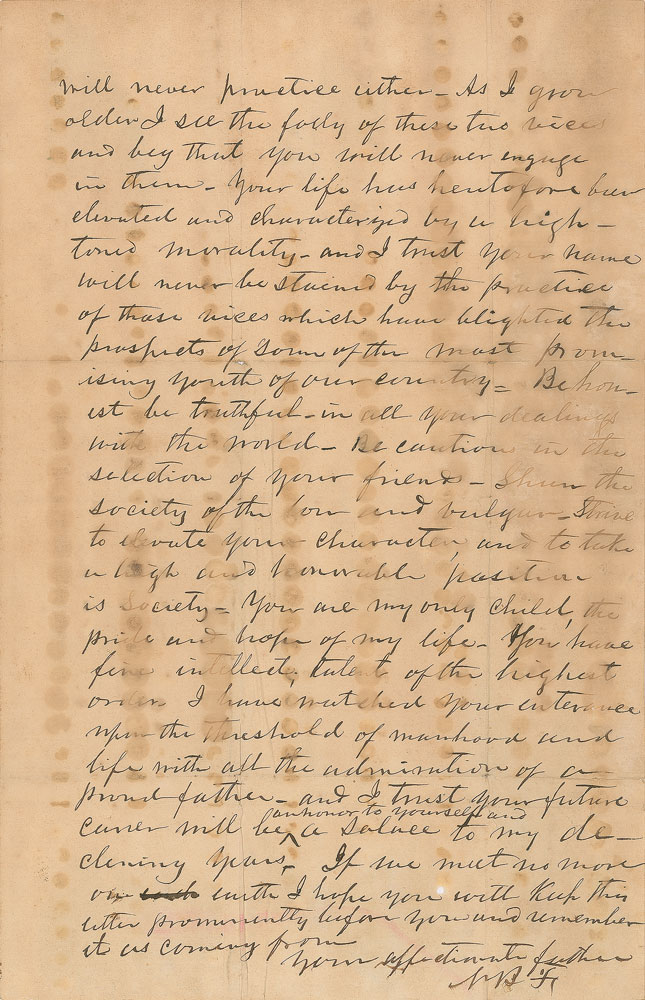 will never practice either - As I grow
older I see the folly of these two vices
and beg that you will never engage
in them - Your life has heretofore been
elevated and characterized by a high -
toned morality - and I trust your name
will never be stained by the practice
of those vices which have blighted the
prospects of some of the most prom-
ising youth of our country - Be hon-
est be truthful - in all your dealings
with the world - Be cautious in the
selection of your friends - Shun the
society of the low and vulgar - Strive
to elevate your character, and to take
a high and honorable position
is society - You are my only child, the
pride and hope of my life - You have
fine intellect, talent of the highest
order I have watched your enterance
upon the threshold of manhood and
life with all the admiration of a
proud father - and I trust your future
an honor to yourself and
career will be ^ a solace to my de-
clening years - If we meet no more
on earth I hope you will keep this
letter prominently before you and remember
it as coming from
Your affectionate father
N B F